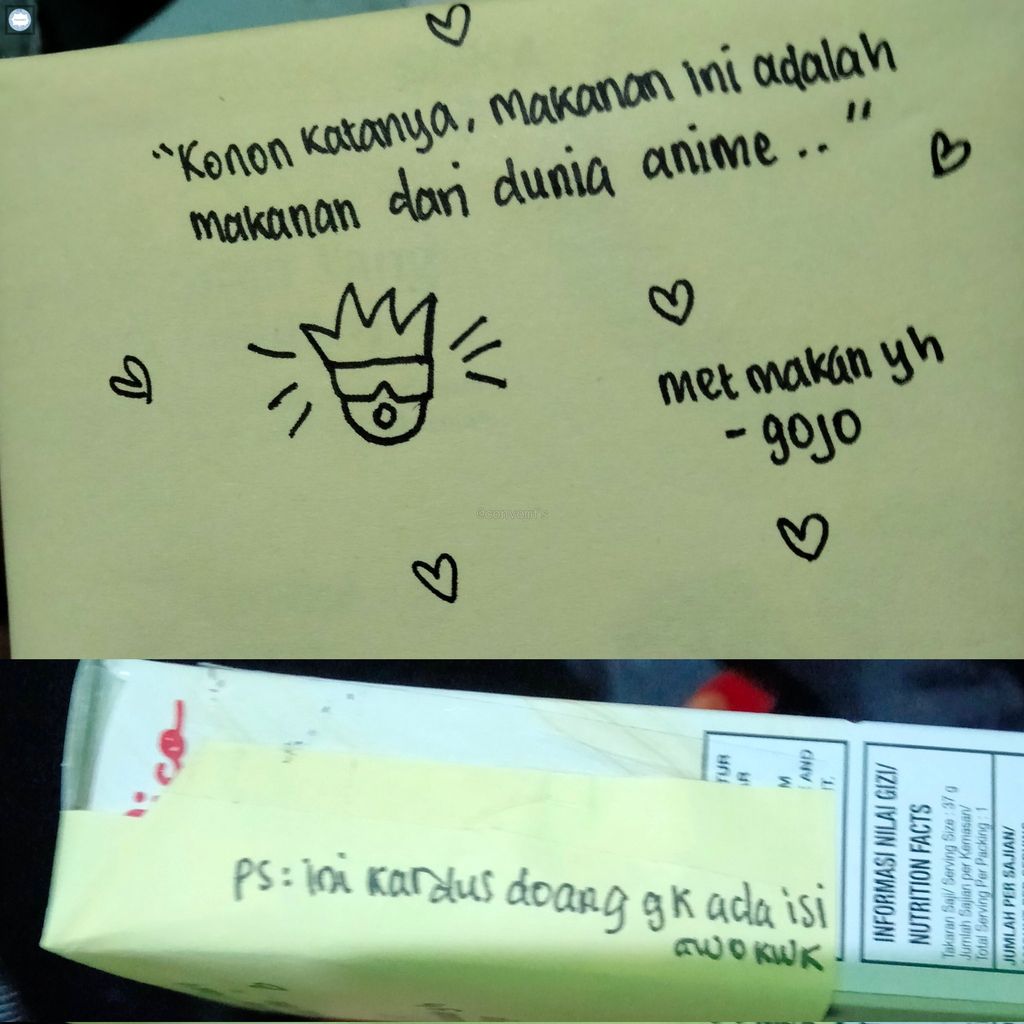 “Konon katanya, makanan ini adalah
makanan dari dunia anime .. ”
met makan yh
- gojo
ps : ini kardus doang gk ada isi
awokwk
INFORMASI NILAI GIZI/
NUTRITION FACTS
Takaran Saji/ Serving Size : 37 g
Jumlah Sajian per Kemasan/
Total Serving Per Packing : 1
JUMLAH PER SAJIAN/